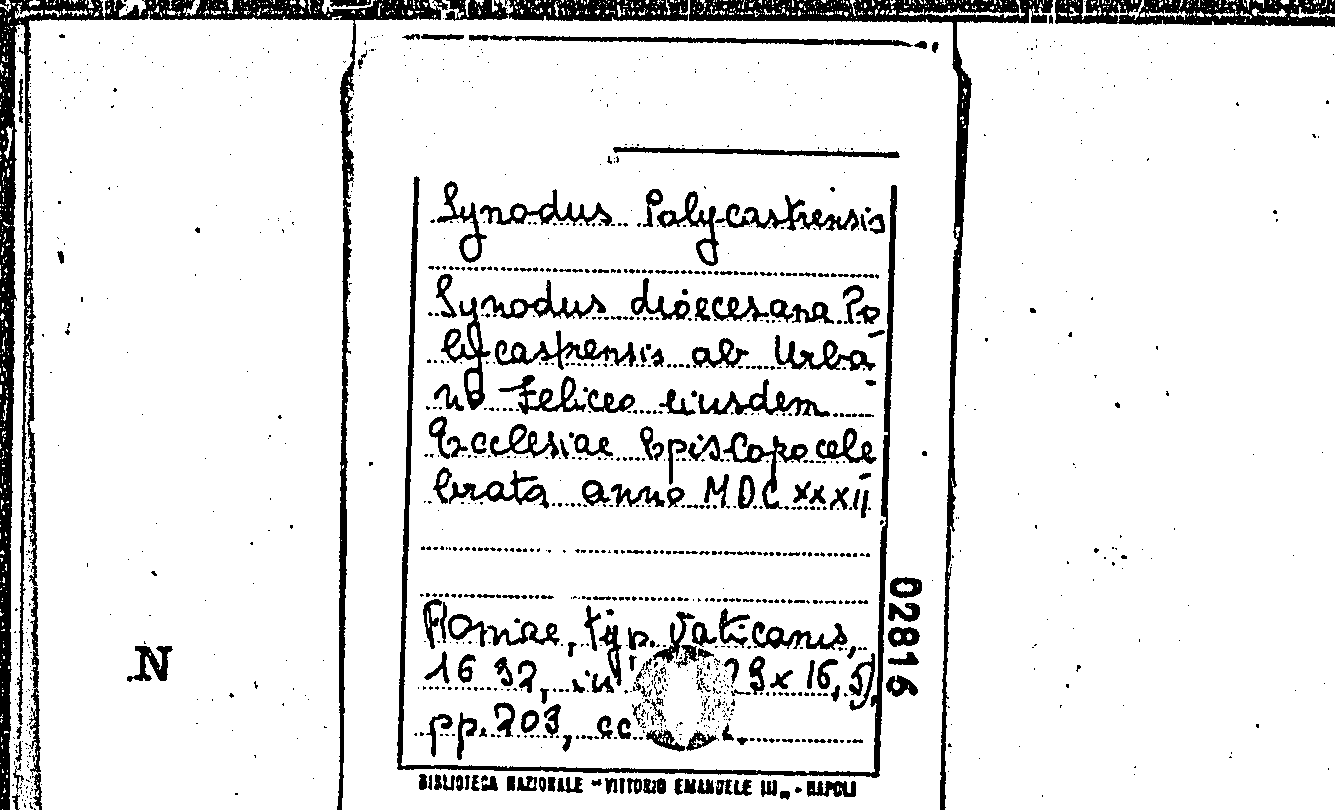 Synodus Polycastrensis
Synodus dioecesana Po-
lycastrensis ab Urba-
no Feliceo eiusdem
Ecclesiae Episcopo cele-
brata anno MDCXXXII
Romae, typ. Vaticanis,
1632, in 29 x 16,5),
pp. 203, cc
02816
N.
BIBLIOTECA NAZIONALE "VITTORIO EMANUELE III" - NAPOLI